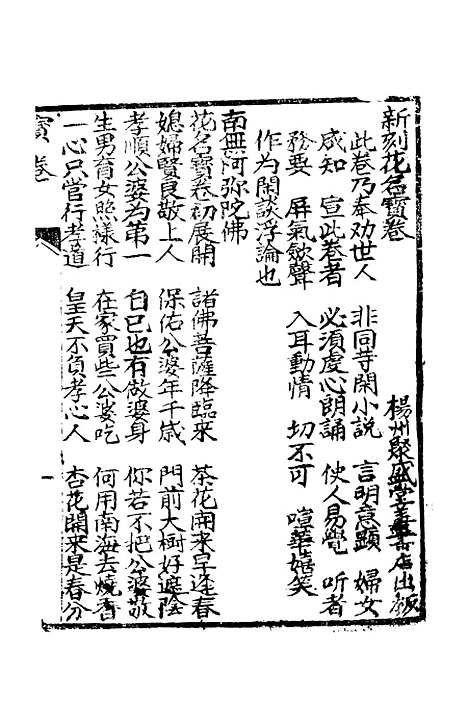 新刻花名寶卷
楊州聚盛堂善書店出板
此卷乃奉劝世人 非同等閑小說 言明意顕 婦女
咸知 宣此卷者 必須虔心朗誦 使人易覺 听者
務要 屏氣歛聲 入耳動情 切不可 喧華嬉笑
作为閑談浮論也
南無阿弥陀佛
花名寶卷初展開 諸佛菩薩降臨來 茶花開來早逢春
媳婦賢良敬上人 保佑公婆年千歲 門前大樹好遮陰
孝順公婆为第一 自己也有做婆身 你若不把公婆敬
生男育女照様行 在家買些公婆吃 何用南海去燒香
一心只當行孝道 皇天不負孝心人 杏花開來是春分
寶卷
一